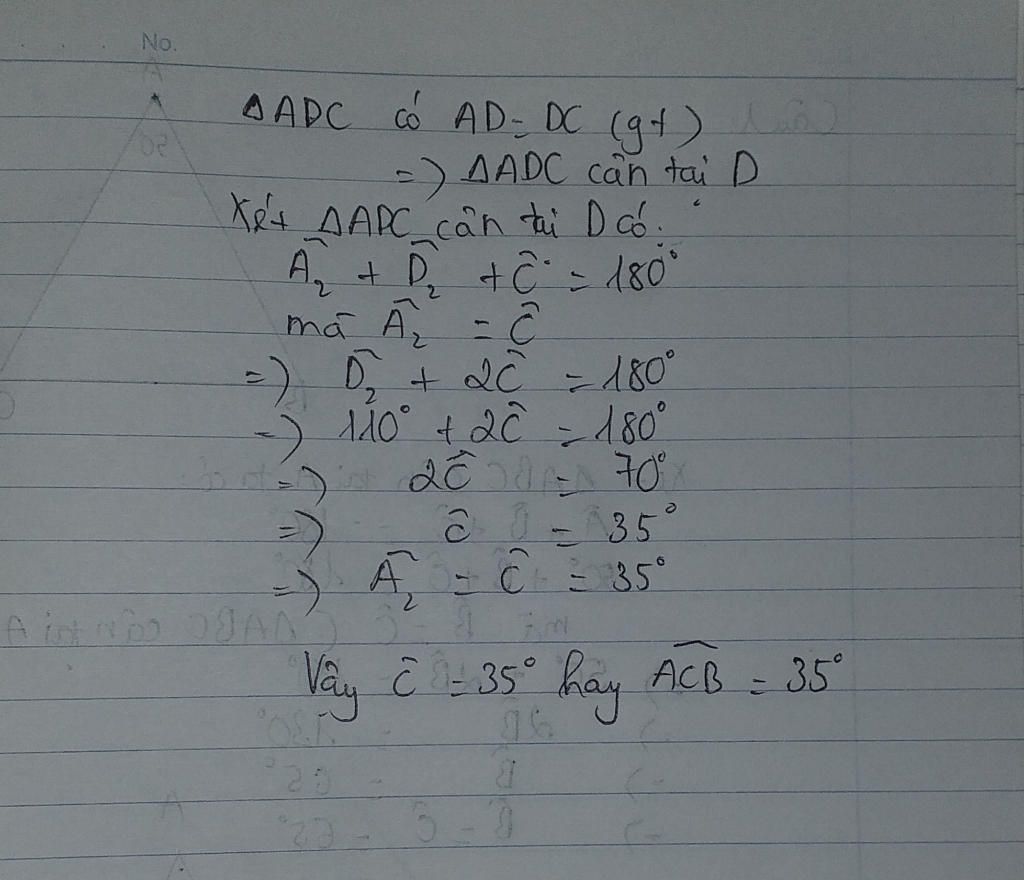 No.
Δ ADC có AD = DC (gt)
=) ΔADC cân tại D
Xét ΔADC cân tại D có:
Â₂ + D̂₂ + Ĉ = 180°
mà Â₂ = Ĉ
=) D̂₂ + 2Ĉ = 180°
=) 110° + 2Ĉ = 180°
=) 2Ĉ = 70°
=) Ĉ = 35°
=) Â₂ = Ĉ = 35°
Vậy Ĉ = 35° hay ACB̂ = 35°